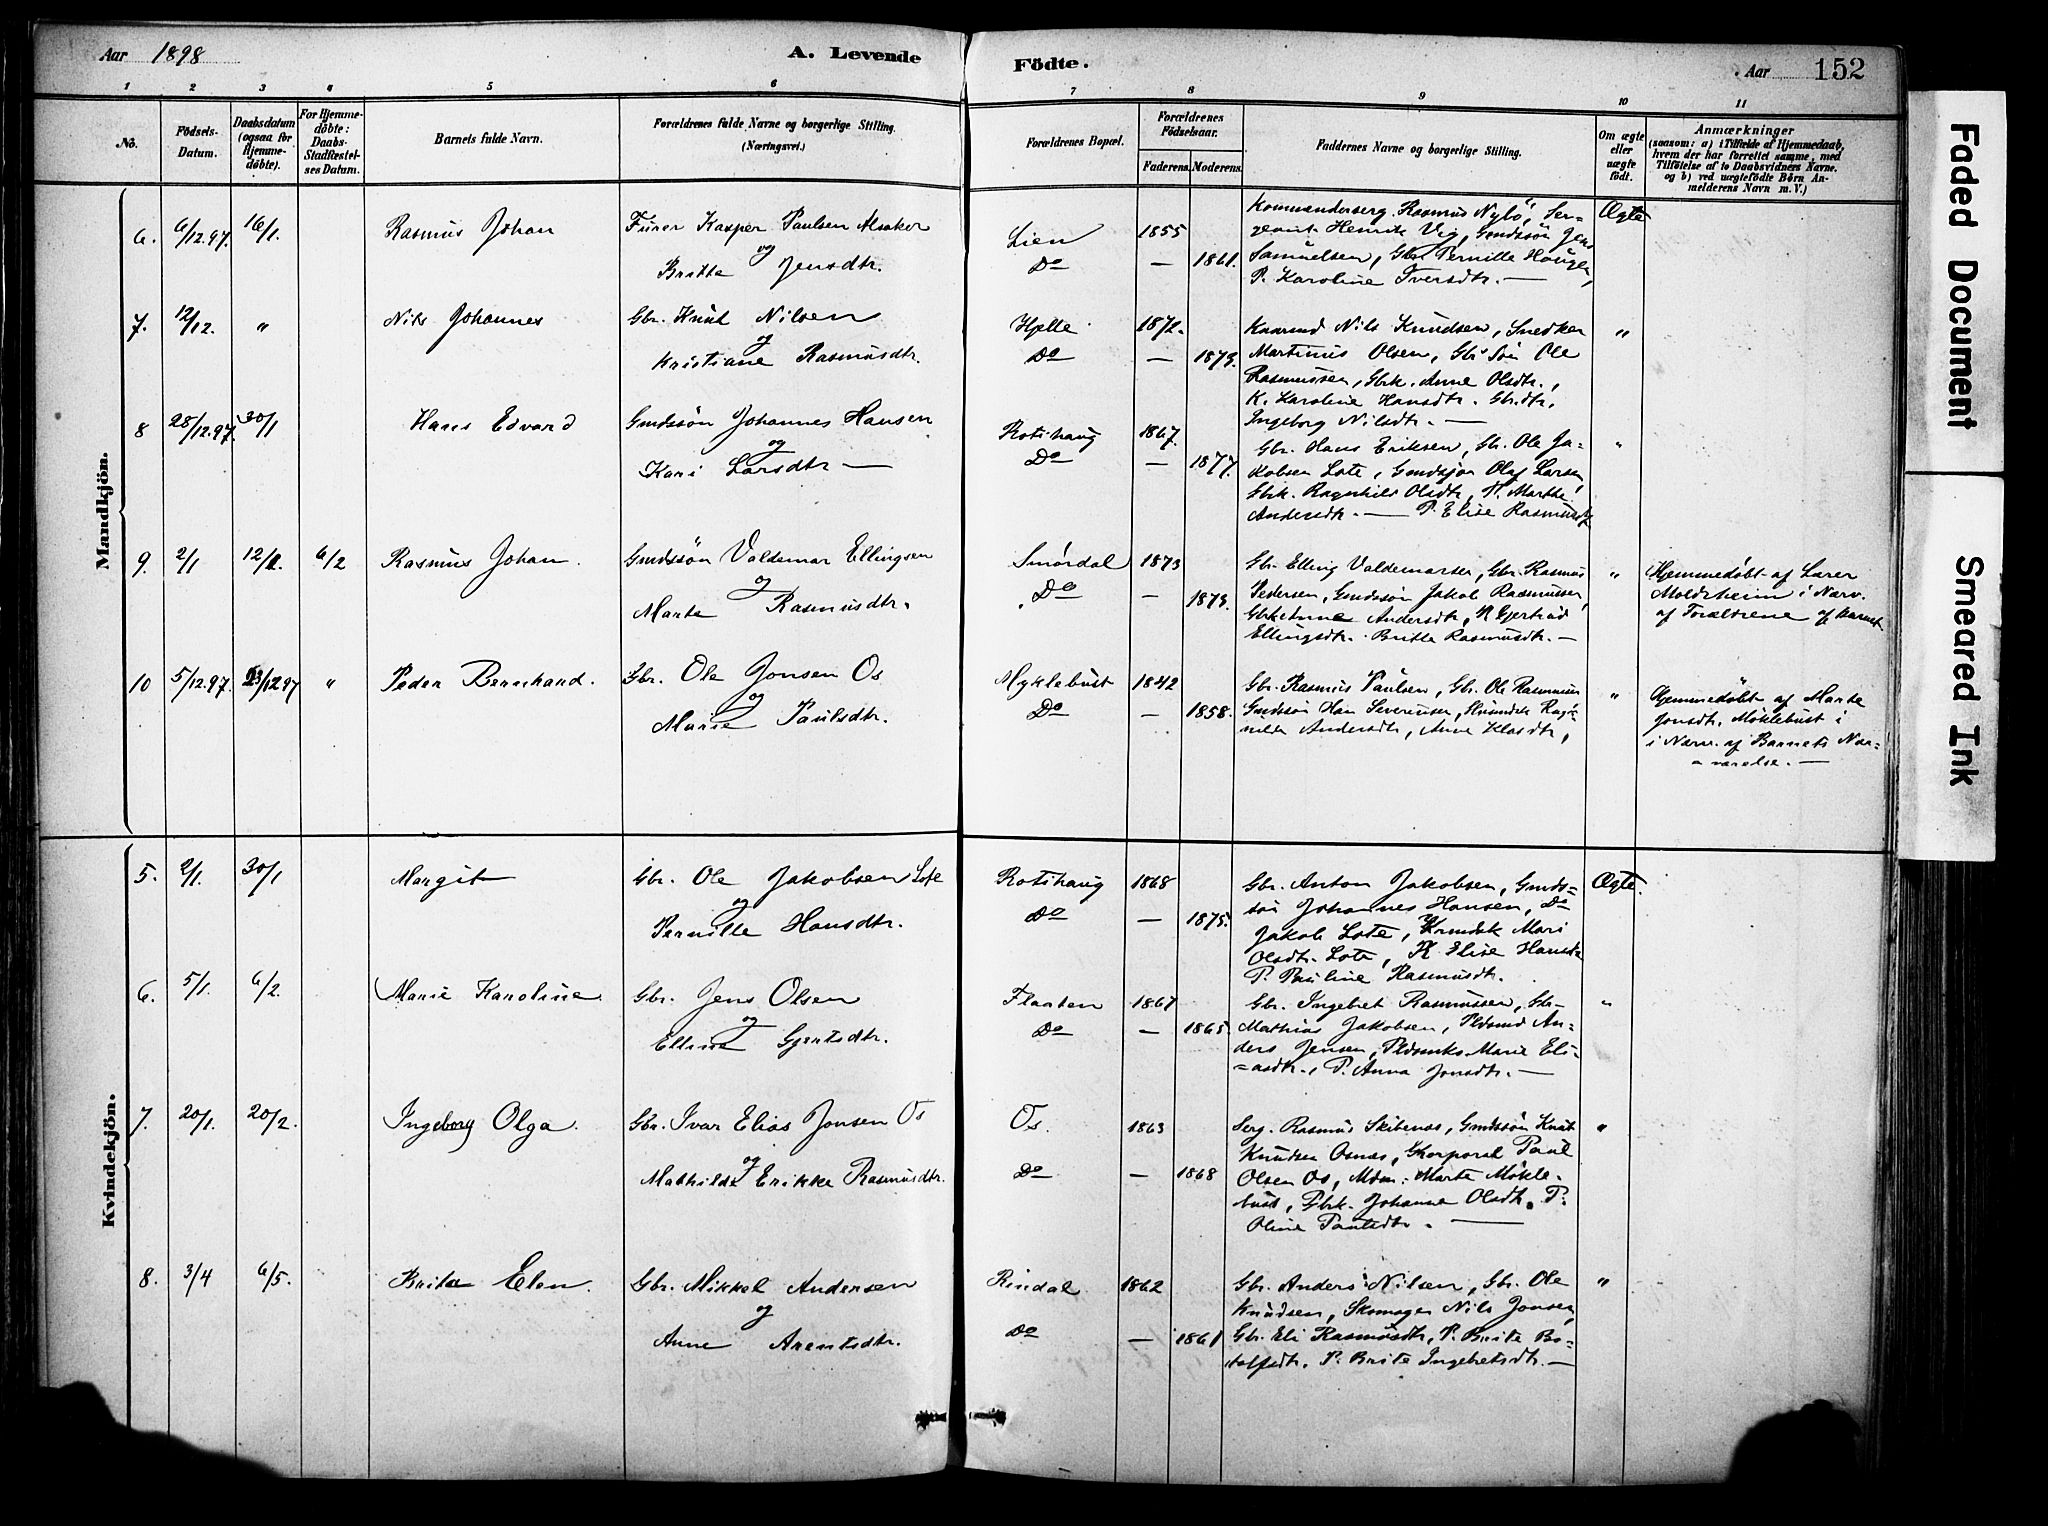 Aar 1898
A. Levende
Födte.
Aar
152
1 2 3 4 5 6 7 8 9 10 11
No.
Födsels-
Datum.
Daabsdatum
(ogsaa for
Hjemme-
döbte).
For Hjemme-
döbte:
Daabs-
Stadfæstel-
ses Datum.
Barnets fulde Navn.
Forældrenes fulde Navne og borgerlige Stilling.
(Næringsvei.)
Forældrenes Bopæl.
Forældrenes
Födselsaar.
Faderens. Moderens.
Faddernes Navne og borgerlige Stilling.
Om ægte
eller
uægte
födt.
Anmærkninger
(saasom: a) i Tilfælde af Hjemmedaab,
hvem der har forrettet samme, med
Tilföielse af to Daabsvidners Navne.
og b) ved uægtefödte Börn An-
melderens Navn m. V.)
Mandkjön.
6. 6/12.97. 16/1. Rasmus Johan
Furer Kasper Paulsen Alsaker
og
Britte Jensdtr.
Lien 1855
Do — 1861.
Kommandersерg. Rasmus Nybö, Ser-
geant Henrik Vig, Gmdssön Jens
Samuelsen, Gbr. Pernille Haugen,
P. Karoline Iversdtr. —
Ægte
7. 12/12. " Nils Johannes
Gbr. Knut Nilsen
og
Kristiane Rasmusdtr.
Hjelle 1872.
Do — 1873.
Kaarmd Nils Knudsen, Snedker
Martinus Olsen, Gbr Sön Ole
Rasmussen, Gbrk. Anne Olsdtr.,
K. Karoline Hansdtr. Gbr.dtr.
Ingeborg Nilsdtr. —
"
8 28/12.97. 30/1 Hans Edvard
Gmdssön Johannes Hansen
og
Kari Larsdtr —
Rotihaug 1867.
Do — 1877.
Gbr. Hans Eriksen, Gbr. Ole Ja-
kobsen Lote, Gmdssön Olaf Larsen,
Gbrk. Ragnhild Olsdtr, P. Marthe
Andersdtr. — P. Elise Rasmusdtr
"
9. 2/1 12/1. 6/2 Rasmus Johan.
Gmdssön Valdemar Ellingsen
og
Marte Rasmusdtr.
Smördal 1873
Do — 1873.
Gbr. Elling Valdemarsen, Gbr. Rasmus
Pedersen, Gmdssön Jakob Rasmussen,
Gbrk Anne Andersdtr, K Gjertrud
Ellingsdtr. Britte Rasmusdtr. —
"
Hjemmedøbt af Lærer
Moldsheim i Nærv.
af Forældrene af Barnet.
10 5/12.97. 23/12 97 " Peder Bernhard.
Gbr. Ole Jonsen Os
og
Marie Paulsdtr.
Myklebust 1842
Do — 1858.
Gbr. Rasmus Paulsen, Gbr. Ole Rasmussen
Gmdssön Hans Severinsen, Husmdsk Ragn-
hilde Andersdtr, Anne Klasdtr,
"
Hjemmedøbt af Marte
Jonsdtr. Möklebust i
i Nærv. af Barnets Nær-
værelse. —
Kvindekjön.
5. 2/1. 30/1 Margit
Gbr. Ole Jakobsen Lote
og
Pernille Hansdtr.
Rotihaug 1868
Do — 1875.
Gbr. Anton Jakobsen, Gmds-
sön Johannes Hansen, Do
Jakob Lote, Kmdsk Mari
Olsdtr. Lote, K Elise Hansdtr
P. Pauline Rasmusdtr.
Ægte.
6. 5/1. 6/2. Marie Karoline
Gbr. Jens Olsen
og
Elline Gjertsdtr.
Flaaten 1867
Do — 1865.
Gbr. Ingebret Rasmussen, Gbr.
Mathias Jakobsen, Pldsmd An-
ders Jensen, Pldsmks Marie Eli-
asdtr., P. Anna Jonsdtr. —
"
7. 20/1. 20/2. Ingeborg Olga.
Gbr. Ivar Elias Jonsen Os
og
Mathilde Erikke Rasmusdtr.
Os. 1863
Do — 1868
Serg. Rasmus Skibenes, Gmdssön Knut
Knudsen Osnes, Korporal Paul
Olsen Os, Mdm: Marte Mökle-
bust, Gbrk. Johanne Olsdtr. P.
Oline Paulsdtr. —
"
8. 3/4 6/5. Brita Elen.
Gbr. Mikkel Andersen
og
Anne Arentsdtr.
Rindal 1862
Do — 1861
Gbr. Anders Nilsen, Gbr. Ole
Knudsen, Skomager Nils Jonsen,
Gbr. Eli Rasmusdtr, P. Brite Bo-
tolfsdtr. P. Brite Ingebretsdtr. —
"
Faded Document
Smeared Ink